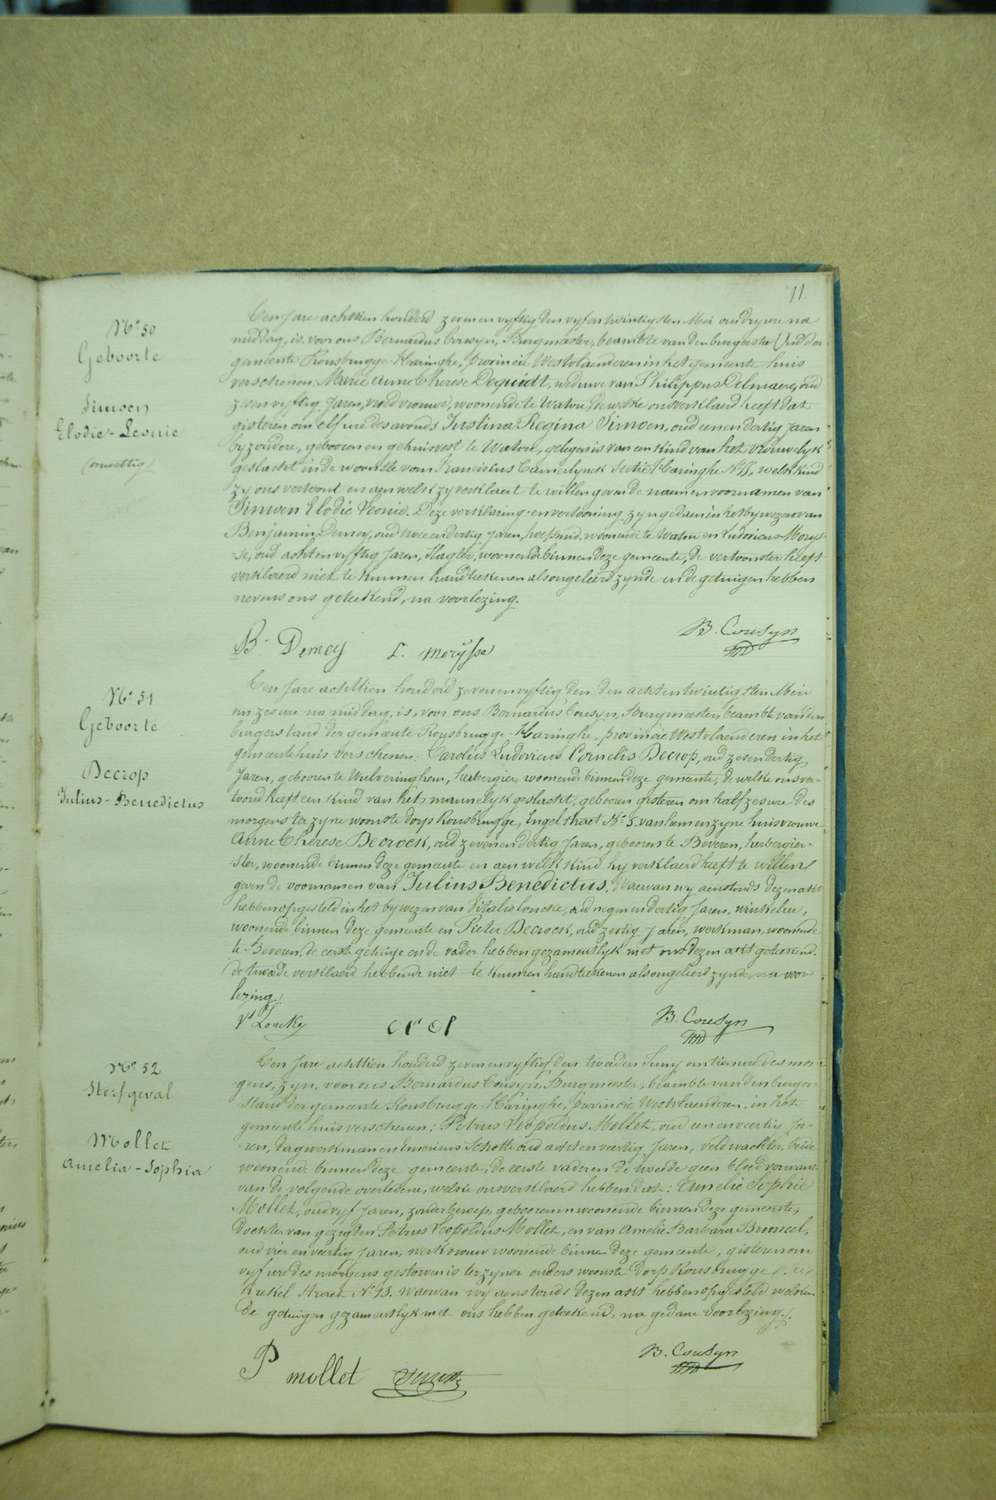 11.
N° 50
Geboorte
Simoen
Elodie-Leonie
(onwettig)
Den Jare achttien honderd zeven en vyftig den vyf en twintigsten Mei om dry ure na
middag, is voor ons Bernardus Cousyn, Burgmeester, beambte van den burgerstand der
gemeente Rousbrugge-Haringhe, provincie Westvlaanderen in het gemeente huis
verschenen Marie Anne Therese Dequidt, weduwe van Philippus Delmaere, oud
zes en vyftig Jaren, vroedvrouwe, woonende te Watou, de welke ons verklaerd heeft dat
gisteren om elf ure des avonds Justina Regina Simoen, oud een en dertig jaren
byzondere, geboren en gehuisvest te Watou, gelegen is van een kind van het vrouwelyk
geslacht in de woonste van Franciscus Camerlynck Sectie Haringhe N° , welk kind
zy ons vertoont en aen welk zy verklaert te willen geven de naem en voornamen van
Simoen Elodie Leonie. Deze verklaring en vertooning zyn gedaen in het bywezen van
Benjamin Demey, oud twee en dertig jaren, hoefsmid, woonende te Watou en Ludovicus Merys-
se, oud acht en vyftig Jaren, Slagter, woonende binnen deze gemeente, de vertoonster heeft
verklaerd niet te kunnen handteekenen als ongeleerd zynde en de getuigen hebben
nevens ons geteekend, na voorlezing.
B. Demey L. merysse B. Cousyn
N° 51
Geboorte
Decrop
Julius-Benedictus
Den Jare achttien honderd zeven en vyftig den den acht en twintigsten Mei
om zes ure na middag, is, voor ons Bernardus Cousyn, Burgmeester, beambte van den
burgerstand der gemeente Rousbrugge-Haringhe, provincie Westvlaanderen in het
gemeente huis verschenen, Carolus Ludovicus Cornelis Decrop, oud zes en dertig
Jaren, geboren te Wulveringhem, herbergier woonende binnen deze gemeente, de welke ons ver-
toond heeft een kind van het mannelyk geslacht, geboren gisteren om half zes ure des
morgens ter zyne woonste dorp Rousbrugge, Ingelstraet N° 5. van hem en zyne huisvrouwe
Anne Therese Decrock, oud zeven en dertig Jaren, geboren te Beveren, herbergier-
ster, woonende binnen deze gemeente en aen welk kind hy verklaerd heeft te willen
geven de voornamen van Julius Benedictus. Waervan wy aenstonds dezen akt
hebben opgesteld in het bywezen van Vitalis Loncke, oud negen en dertig Jaren, winkelier,
woonende binnen deze gemeente en Pieter Decrock, oud zestig jaren, werkman, woonende
te Beveren, de eerste getuige en de vader hebben gezamentlyk met ons dezen akt geteekend.
de tweede verklaerd hebbende niet te kunnen handteekenen als ongeleerd zynde, na voor
lezing.
Vl Loncke B. Cousyn
N° 52
Sterfgeval
Mollet
Amelia-Sophia
Den Jare achttien honderd zeven en vyftig den tweeden Juny om tien ure des mor-
gens, zyn, voor ons Bernardus Cousyn, Burgmeester, beambte van den burger-
stand der gemeente Rousbrugge-Haringhe, provincie Westvlaanderen, in het
gemeente huis verschenen, Petrus Leopoldus Mollet, oud een en veertig Ja-
ren, dagwerkman en Schotte oud acht en veertig Jaren, veldwachter, beide
woonende binnen deze gemeente, de eerste vader en de tweede geen bloedverwant
van de volgende overledene, welke ons verklaerd hebben dat: Emelie Sophie
Mollet, oud vyf Jaren, zonder beroep, geboren en woonende binnen deze gemeente,
dochter van gezegden Petrus Leopoldus Mollet, en van Amelie Barbara
oud vier en veertig Jaren, werkvrouw woonende binnen deze gemeente, gisteren om
vyf ure des morgens gestorven is ter zyner ouders woonste Dorp Rousbrugge
N° 13. Waervan wy aenstonds dezen akt hebben opgesteld welken
de getuigen gezamentlyk met ons hebben geteekend, na gedane voorlezing.
P mollet B. Cousyn